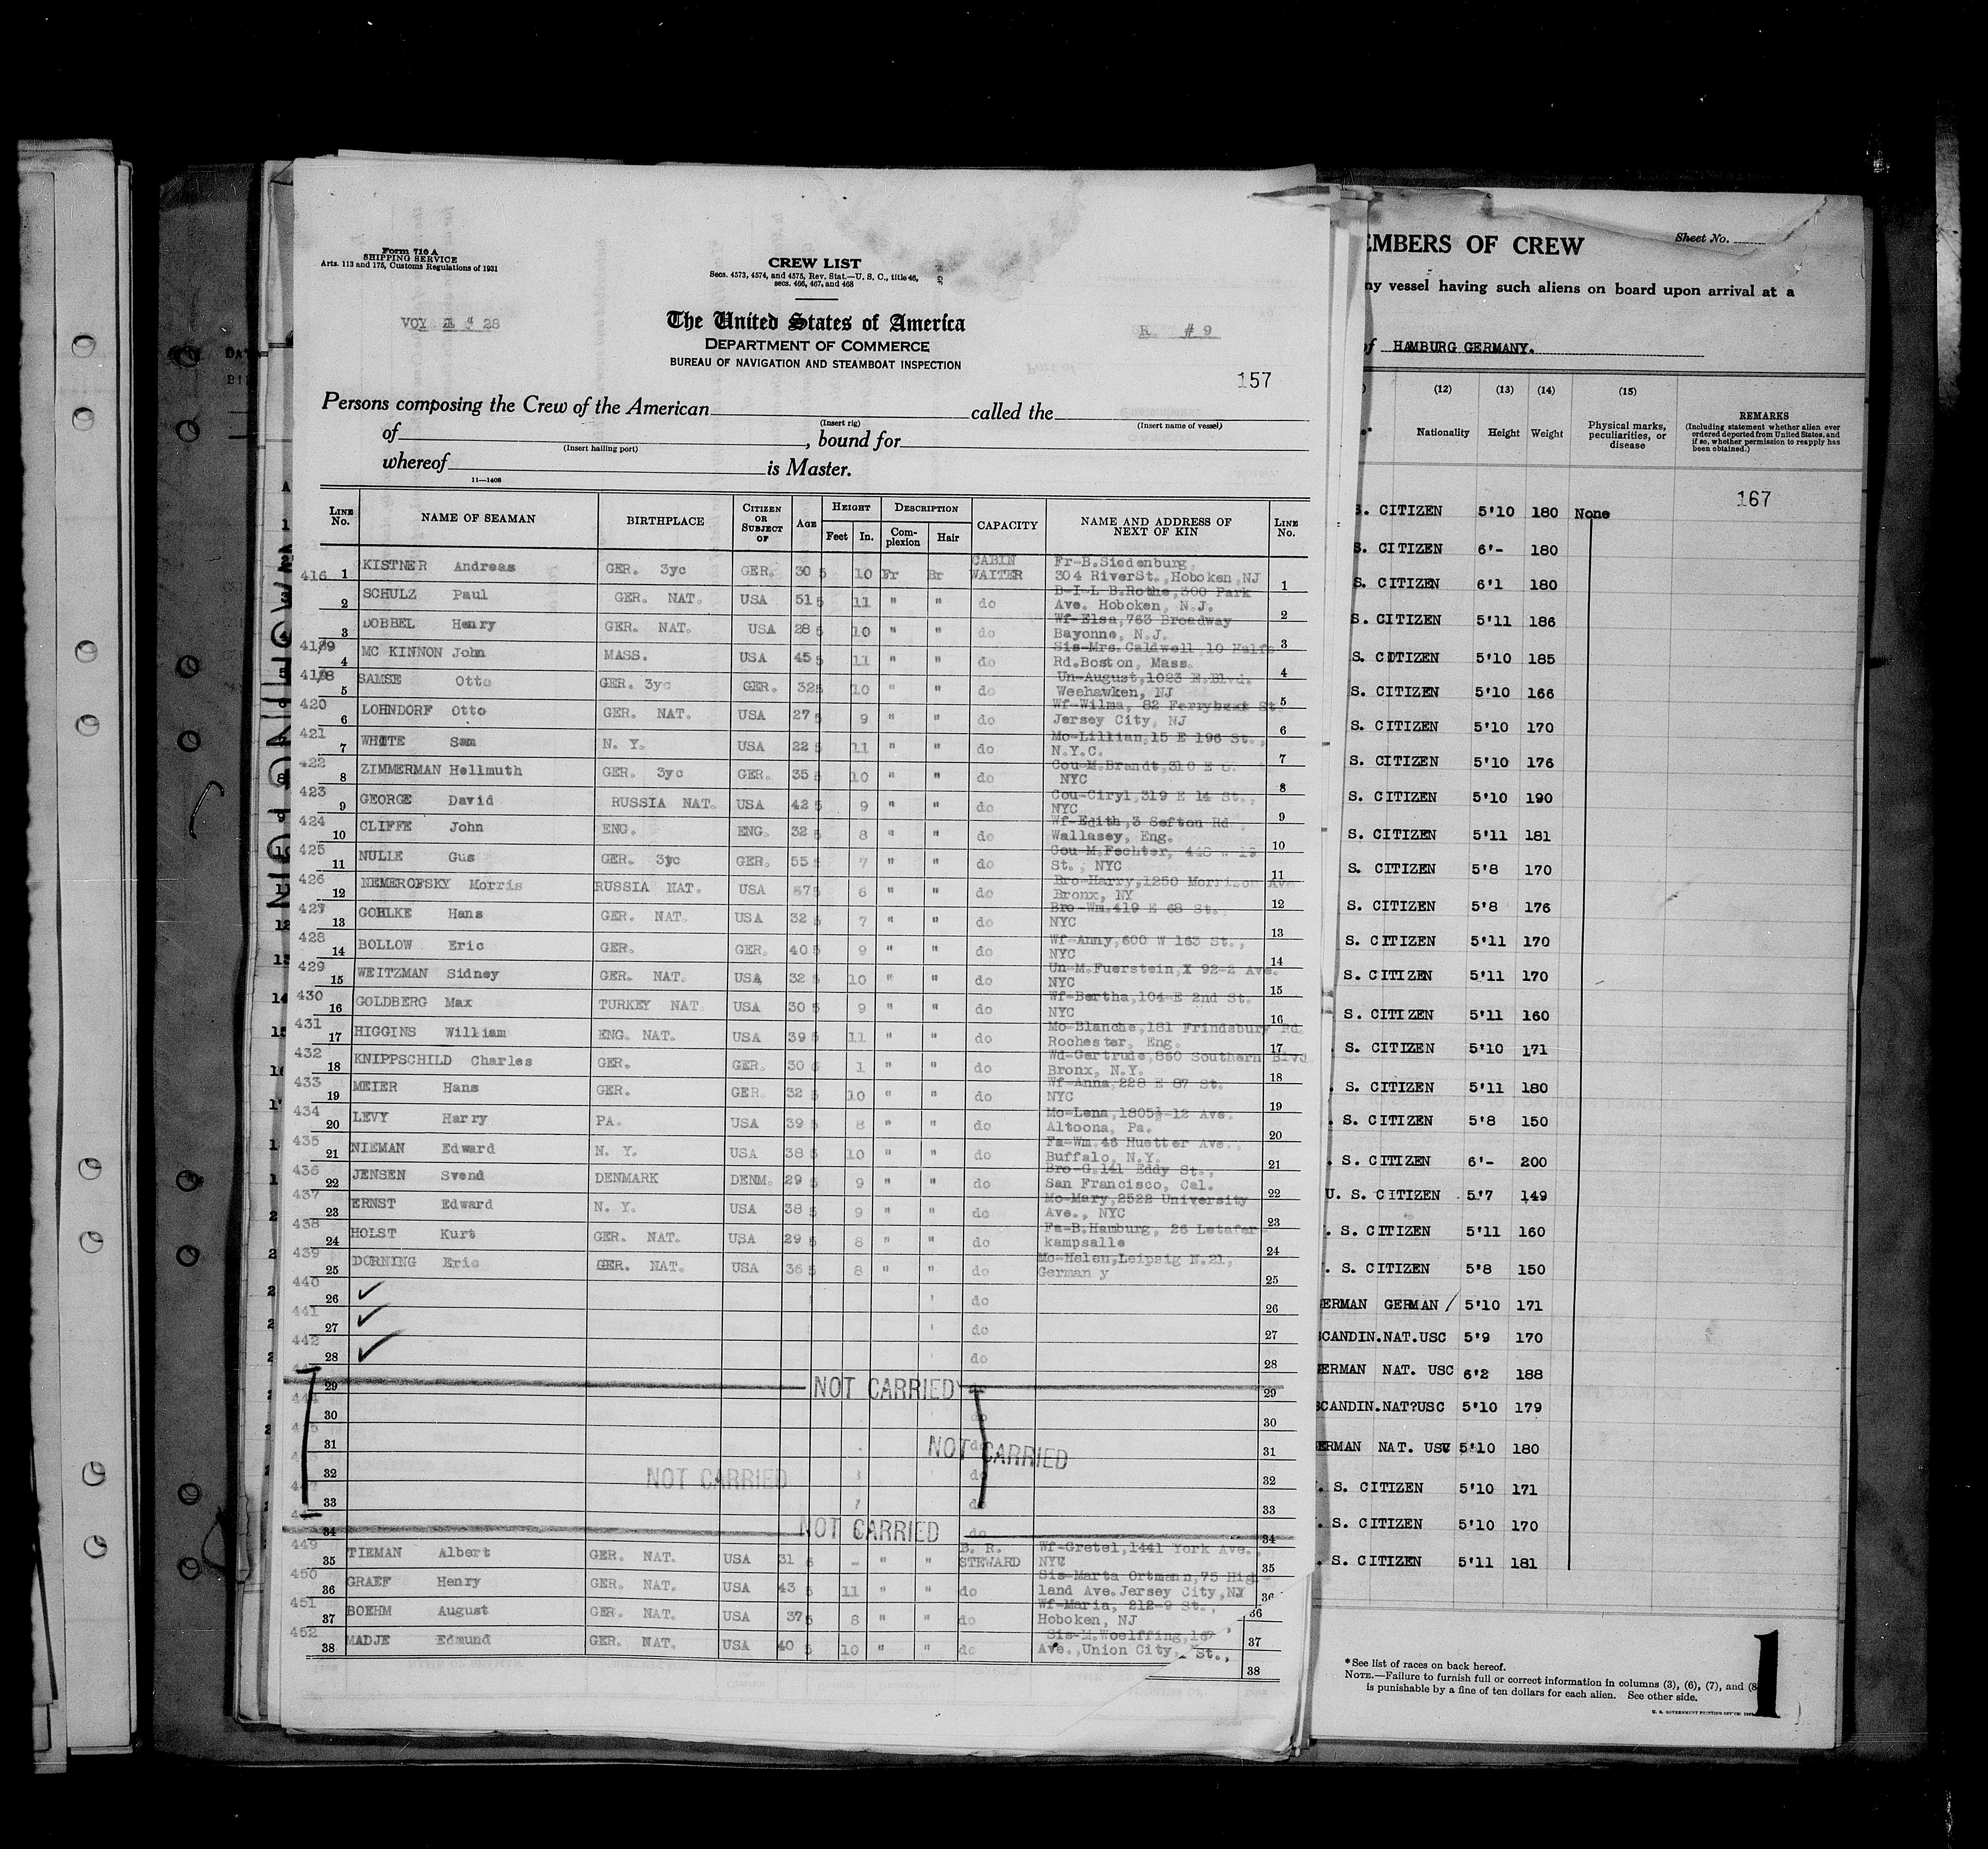 Form 710 A
SHIPPING SERVICE
Arts. 113 and 175, Customs Regulations of 1931
CREW LIST
Secs. 4573, 4574, and 4575, Rev. Stat.—U. S. C., title 46,
secs. 466, 467, and 468
VOY 28
The United States of America
R #9
DEPARTMENT OF COMMERCE
BUREAU OF NAVIGATION AND STEAMBOAT INSPECTION
157
Persons composing the Crew of the American called the
(Insert rig) (Insert name of vessel)
of , bound for
(Insert hailing port)
whereof is Master.
11—1408
LINE No. NAME OF SEAMAN BIRTHPLACE CITIZEN OR SUBJECT OF AGE HEIGHT Feet In. DESCRIPTION Complexion Hair CAPACITY NAME AND ADDRESS OF NEXT OF KIN LINE No.
416 1 KISTNER Andreas GER. 3yc GER. 30 5 10 Fr Br CABIN WAITER Fr-B.Siedenburg, 304 RiverSt.,Hoboken,NJ 1
2 SCHULZ Paul GER. NAT. USA 51 5 11 " " do B-I-L B.Rothe,300 Park Ave. Hoboken, N.J. 2
3 DOBBEL Henry GER. NAT. USA 28 5 10 " " do Wf-Elsa,763 Broadway Bayonne, N.J. 3
4 MC KINNON John MASS. USA 45 5 11 " " do Sis-Mrs.Caldwell,10 Rd.Boston, Mass. 4
5 SAMSE Otto GER. 3yc GER. 32 5 10 " " do Un-August,1023 E.Blvd. Weehawken, NJ 5
420 6 LOHNDORF Otto GER. NAT. USA 27 5 9 " " do Wf-Wilma, 82 St. Jersey City, NJ 6
421 7 WHITE Sam N. Y. USA 22 5 11 " " do Mo-Lillian,15 E 196 St., N.Y.C. 7
422 8 ZIMMERMAN Hellmuth GER. 3yc GER. 35 5 10 " " do Cou-M.Brandt,310 E NYC 8
423 9 GEORGE David RUSSIA NAT. USA 42 5 9 " " do Cou-Ciryl,319 E 14 St., NYC 9
424 10 CLIFFE John ENG. ENG. 32 5 8 " " do Wf-Edith,3 Sefton Rd Wallasey, Eng. 10
425 11 NULLE Gus GER. 3yc GER. 55 5 7 " " do Cou-M.Fechter, W 19 St., NYC 11
426 12 NEMEROFSKY Morris RUSSIA NAT. USA 5 6 " " do Bro-Harry,1250 Morrison Ave Bronx, NY 12
427 13 GOHLKE Hans GER. NAT. USA 32 5 7 " " do Bro-Wm.419 E 68 St. NYC 13
428 14 BOLLOW Eric GER. GER. 40 5 9 " " do Wf-Anny,600 W 163 St., NYC 14
429 15 WEITZMAN Sidney GER. NAT. USA 32 5 10 " " do Un-M.Fuerstein, 92-2 Ave. NYC 15
430 16 GOLDBERG Max TURKEY NAT. USA 30 5 9 " " do Wf-Bertha,104 E 2nd St. NYC 16
431 17 HIGGINS William ENG. NAT. USA 39 5 11 " " do Mo-Blanche,181 Frindsbury Rd. Rochester, Eng. 17
432 18 KNIPPSCHILD Charles GER. GER. 30 6 1 " " do Wd-Gertrude,860 Southern Blvd Bronx, N.Y. 18
433 19 MEIER Hans GER. GER. 32 5 10 " " do Wf-Anna,228 E 87 St. NYC 19
434 20 LEVY Harry PA. USA 39 5 8 " " do Mo-Lena,1805½-12 Ave. Altoona, Pa. 20
435 21 NIEMAN Edward N. Y. USA 38 5 10 " " do Fa-Wm.46 Huetter Ave., Buffalo, N.Y. 21
436 22 JENSEN Svend DENMARK DENM. 29 5 9 " " do Bro-G.141 Eddy St., San Francisco, Cal. 22
437 23 ERNST Edward N. Y. USA 38 5 9 " " do Mo-Mary,2522 University Ave., NYC 23
438 24 HOLST Kurt GER. NAT. USA 29 5 8 " " do Fa-B.Hamburg, 26 kampsalle 24
439 25 DORNING Eric GER. NAT. USA 36 5 8 " " do Mo-Helen,Leipsig N.21, German y 25
440 26 do 26
441 27 do 27
442 28 do 28
29 NOT CARRIED 29
30 do 30
31 NOT CARRIED 31
32 NOT CARRIED do 32
33 do 33
34 NOT CARRIED do 34
449 35 TIEMAN Albert GER. NAT. USA 31 6 - " " B. R. STEWARD Wf-Gretel,1441 York Ave., NYC 35
450 36 GRAEF Henry GER. NAT. USA 43 5 11 " " do Sis-Marta Ortmann,75 High land Ave.Jersey City,NJ 36
451 37 BOEHM August GER. NAT. USA 37 5 8 " " do Wf-Maria, 212-9 St., Hoboken, NJ 36 37
452 38 MADJE Edmund GER. NAT. USA 40 5 10 " " do Sis-M.Woelffing,167 Ave.,Union City, St., 38
EMBERS OF CREW
Sheet No.
ny vessel having such aliens on board upon arrival at a
of HAMBURG GERMANY.
(12) (13) (14) (15)
Nationality Height Weight Physical marks, peculiarities, or disease REMARKS
(Including statement whether alien ever ordered deported from United States, and if so, whether permission to reapply has been obtained.)
167
S. CITIZEN 5'10 180 None
S. CITIZEN 6'- 180
S. CITIZEN 6'1 180
S. CITIZEN 5'11 186
S. CITIZEN 5'10 185
S. CITIZEN 5'10 166
S. CITIZEN 5'10 170
S. CITIZEN 5'10 176
S. CITIZEN 5'10 190
S. CITIZEN 5'11 181
S. CITIZEN 5'8 170
S. CITIZEN 5'8 176
S. CITIZEN 5'11 170
S. CITIZEN 5'11 170
S. CITIZEN 5'11 160
S. CITIZEN 5'10 171
S. CITIZEN 5'11 180
. S. CITIZEN 5'8 150
. S. CITIZEN 6'- 200
U. S. CITIZEN 5'7 149
. S. CITIZEN 5'11 160
. S. CITIZEN 5'8 150
ERMAN GERMAN 5'10 171
CANDIN.NAT.USC 5'9 170
ERMAN NAT. USC 6'2 188
CANDIN.NAT?USC 5'10 179
ERMAN NAT. USC 5'10 180
. S. CITIZEN 5'10 171
. S. CITIZEN 5'10 170
. S. CITIZEN 5'11 181
*See list of races on back hereof.
NOTE.—Failure to furnish full or correct information in columns (3), (6), (7), and (8
is punishable by a fine of ten dollars for each alien. See other side.
U. S. GOVERNMENT PRINTING OFFICE
1